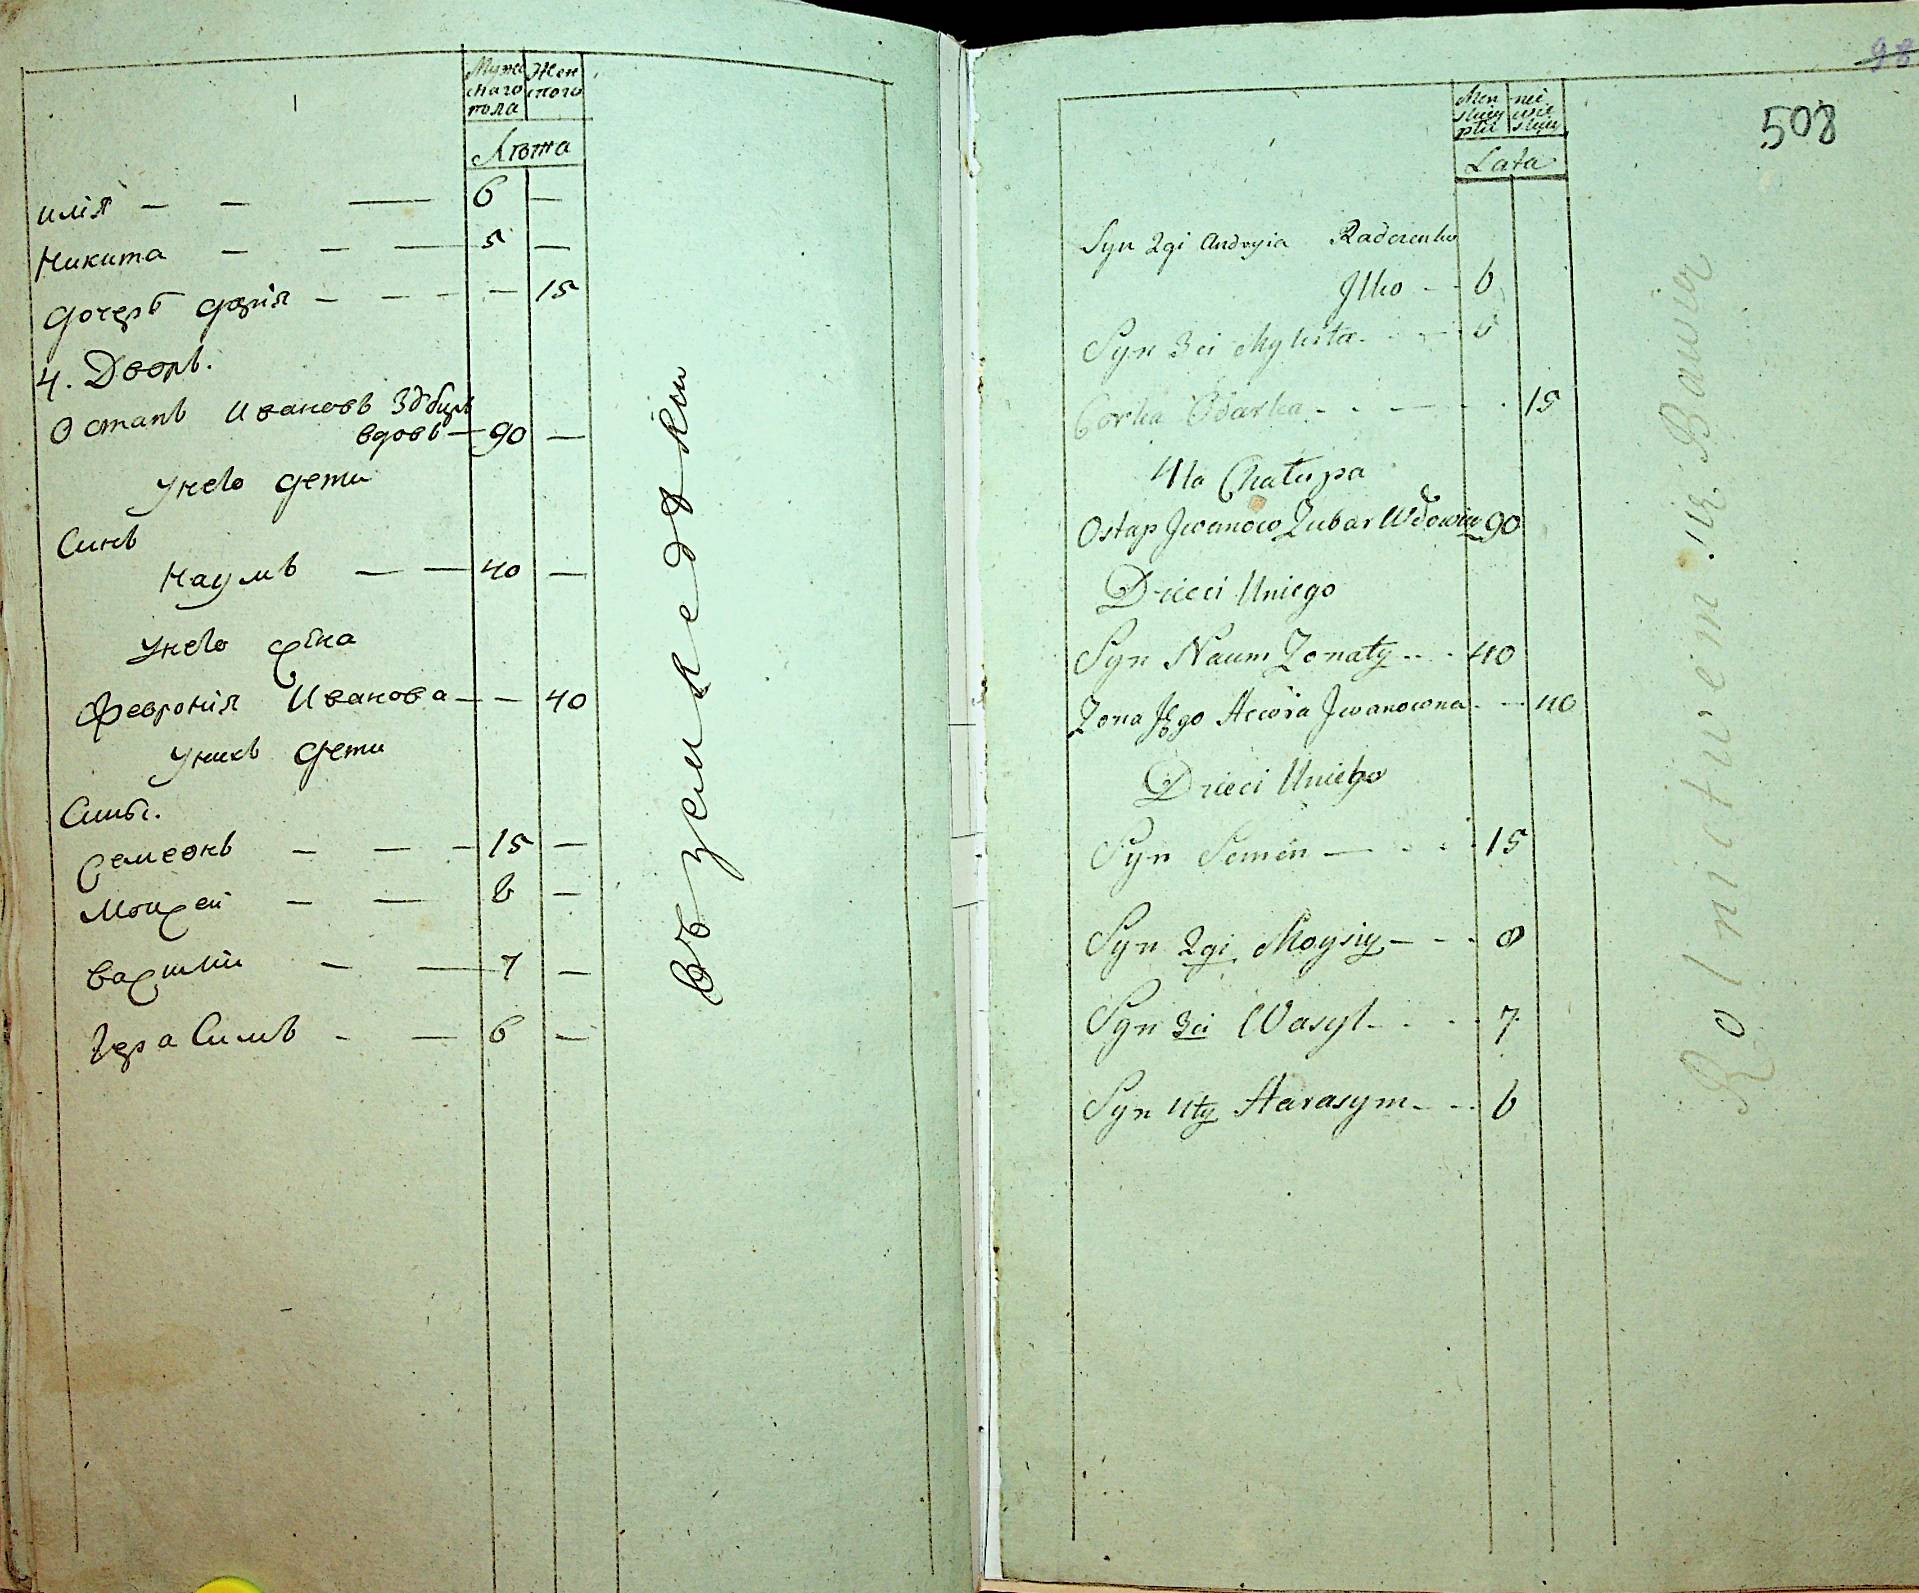 Мужс Жен
скаго ского
пола
Лѣта
илія — — — 6 —
Никита — — — 5 —
дочерь дарія — — — — 15
4. Дворъ.
Остапъ Ивановъ
вдовъ — 90 —
у него дети
Синъ
Наумъ — — 40 —
у него жена
Феvронія Иванова — — 40
у нихъ дети
Сины.
Семеонъ — — — 15 —
Моисей — — 8 —
василий — — 7 —
Герасимъ — — 6 —
въ земледелии
98
508
Men nei
skiey wie
plci skiey
Lata
Syn 2gi Andryia Raderenko
Ilko - - 6
Syn 3ci Mykita - - 5
Corka Odarka - - — - - 15
4ta Chałupa
Ostap Iwanow Zubar Wdowiec 90
Dzieci Uniego
Syn Naum Zonaty - - - 40
Zona Jego Iwanowna - - - 40
Dzieci Uniego
Syn Semen — - - - 15
Syn 2gi Moysiy - - - 8
Syn 3ci Wasyl - - - 7
Syn 4ty Harasym - - - 6
Rolnictwem się Bawią